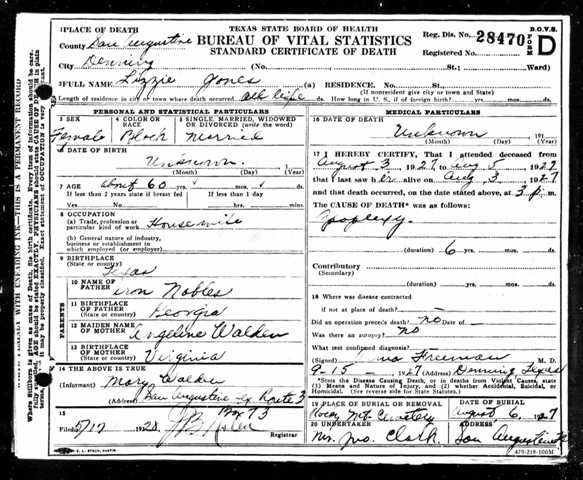 1 PLACE OF DEATH
TEXAS STATE BOARD OF HEALTH
BUREAU OF VITAL STATISTICS
STANDARD CERTIFICATE OF DEATH
Reg. Dis. No. 28470
B.O.V.S.
D
County San Augustine
Registered No.
City Denning (No. St. Ward)
2 FULL NAME Lizzie Jones (a) RESIDENCE. No. St.
(If nonresident give city or town and State)
Length of residence in city or town where death occurred all life ds. How long in U. S., if of foreign birth? yrs. mos. ds.
PERSONAL AND STATISTICAL PARTICULARS
3 SEX
4 COLOR OR RACE
5 SINGLE, MARRIED, WIDOWED OR DIVORCED (write the word)
Female Black Married
6 DATE OF BIRTH
Unknown
(Month) (Day) (Year)
7 AGE about 60 yrs mos. ds.
If less than 2 years state if breast fed
If less than 1 day
Yes No hrs. min.
8 OCCUPATION
(a) Trade, profession or particular kind of work Housewife
(b) General nature of industry, business or establishment in which employed (or employer)
9 BIRTHPLACE
(State or country)
Texas
PARENTS
10 NAME OF FATHER Nobles
11 BIRTHPLACE OF FATHER Georgia
(State or country)
12 MAIDEN NAME OF MOTHER Angeline Walden
13 BIRTHPLACE OF MOTHER Virginia
(State or country)
14 THE ABOVE IS TRUE
(Informant) Mary Walden
(Address) San Augustine Tx Route 3
Box 73
15
Filed 5/17 1928
Registrar
MEDICAL PARTICULARS
16 DATE OF DEATH
Unknown 191
(Month) (Day) (Year)
17 I HEREBY CERTIFY, That I attended deceased
from August 3 1927 to Aug 5 1927
that I last saw her alive on Aug 3 1927
and that death occurred, on the date stated above, at 3 p m.
The CAUSE OF DEATH* was as follows:
(duration) 6 yrs. mos. ds.
Contributory
(Secondary)
(duration) yrs. mos. ds.
18 Where was disease contracted
if not at place of death?
Did an operation precede death? no Date of
Was there an autopsy? no
What test confirmed diagnosis?
(Signed) Freeman M. D.
9-15- 1927 (Address) Denning Texas
*State the Disease Causing Death, or in deaths from Violent Causes, state (1) Means and Nature of Injury, and (2) whether Accidental, Suicidal, or Homicidal. (See reverse side for additional space.)
19 PLACE OF BURIAL OR REMOVAL
DATE OF BURIAL
Rocky Mt. Cemetery August 6 1927
20 UNDERTAKER
ADDRESS
Mrs. Jno. Clark. San Augustine Tx
E. L. STECK, AUSTIN
479-219-100M